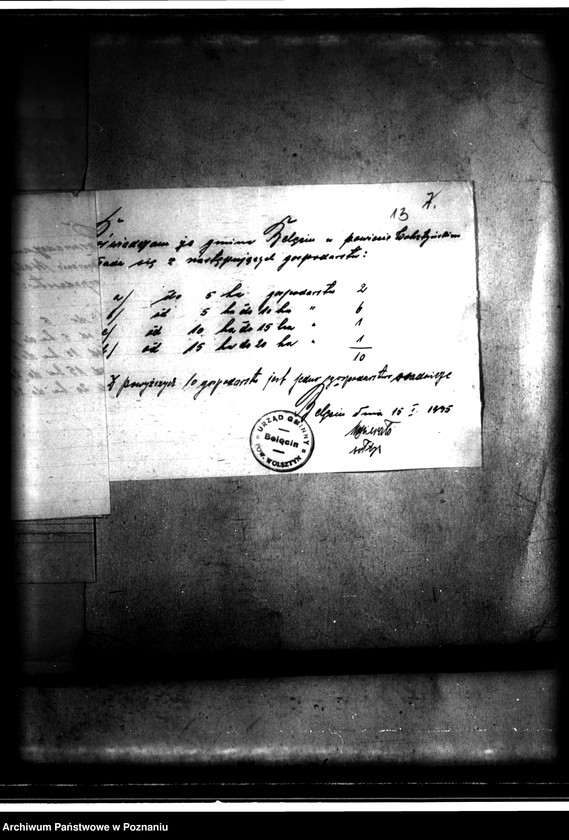 13 7.
gmina Belęcin w powiecie Wolsztyńskim
się z następujących gospodarstw:
a) do 5 ha gospodarstw 2
b) od 5 ha do 10 ha " 6
c) od 10 ha do 15 ha " 1
od 15 ha do 20 ha " 1
10
Z powyższych 10 gospodarstw jest jedno gospodarstwo
Belęcin dnia 15 I.
URZĄD GMINNY
Belęcin
POW. WOLSZTYN
sołtys
Archiwum Państwowe w Poznaniu